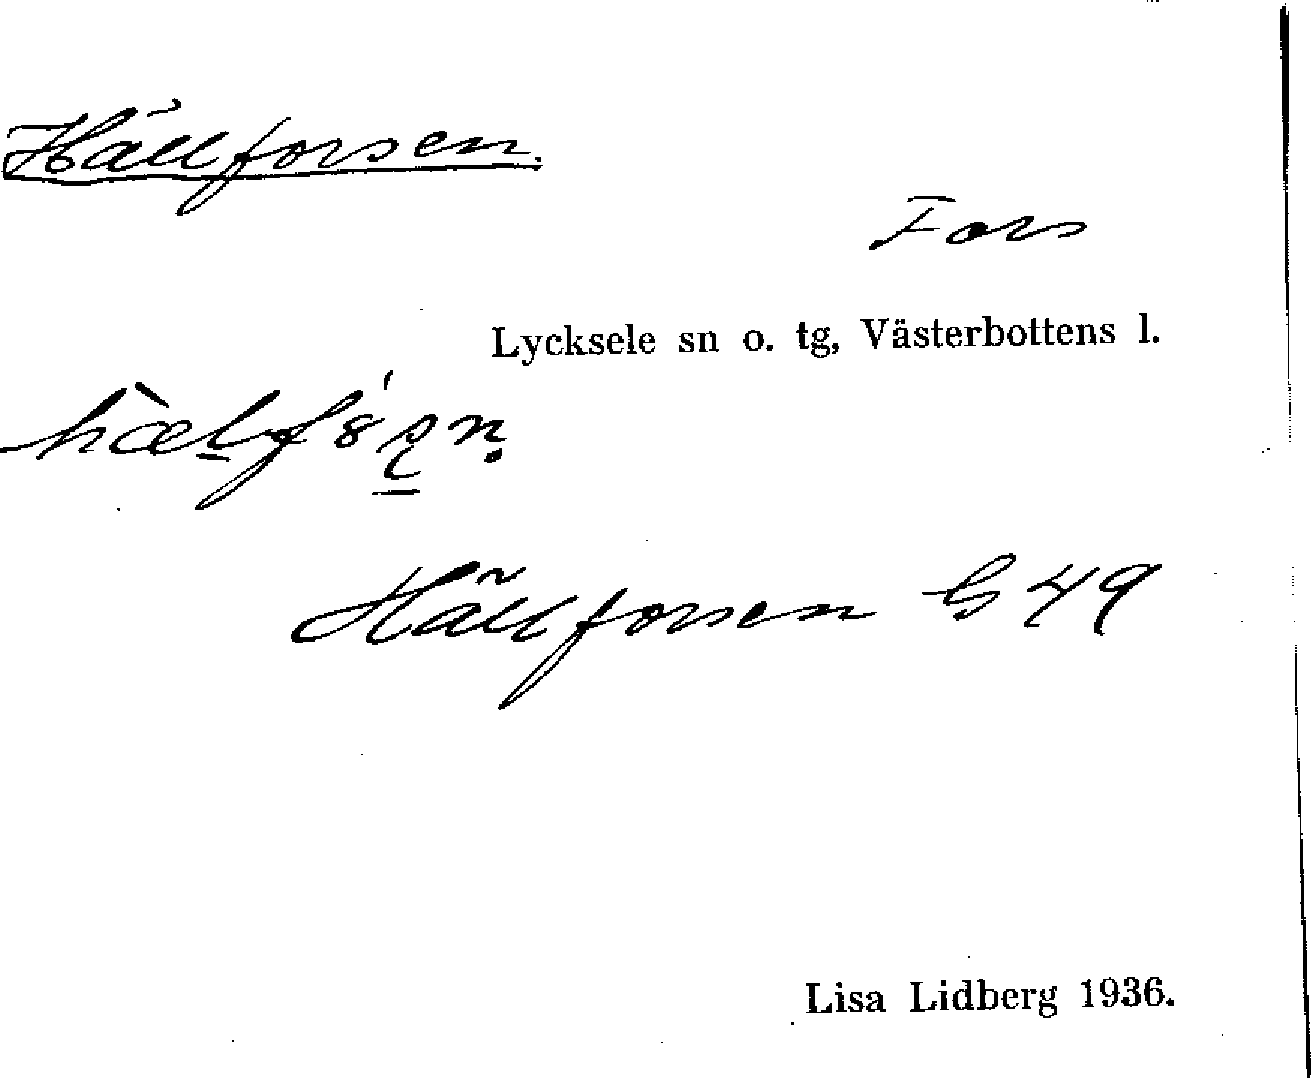 Hällforsen.
Fors
Lycksele sn o. tg, Västerbottens l.
Hällforsen G 49
Lisa Lidberg 1936.